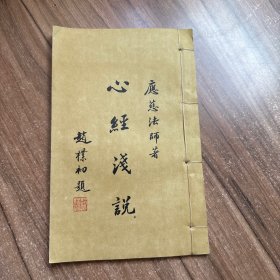 應慈法師著
心經淺說
趙樸初題